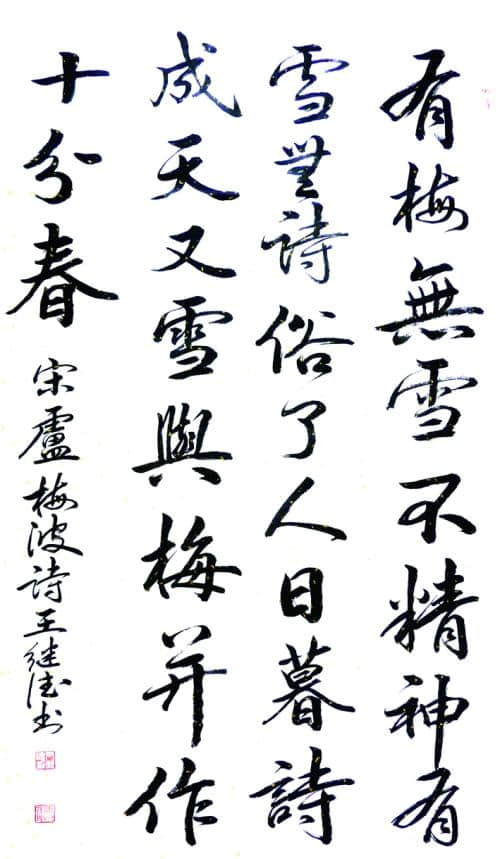 有梅無雪不精神有
雪無詩俗了人日暮詩
成天又雪與梅并作
十分春
宋盧梅坡詩王继德书